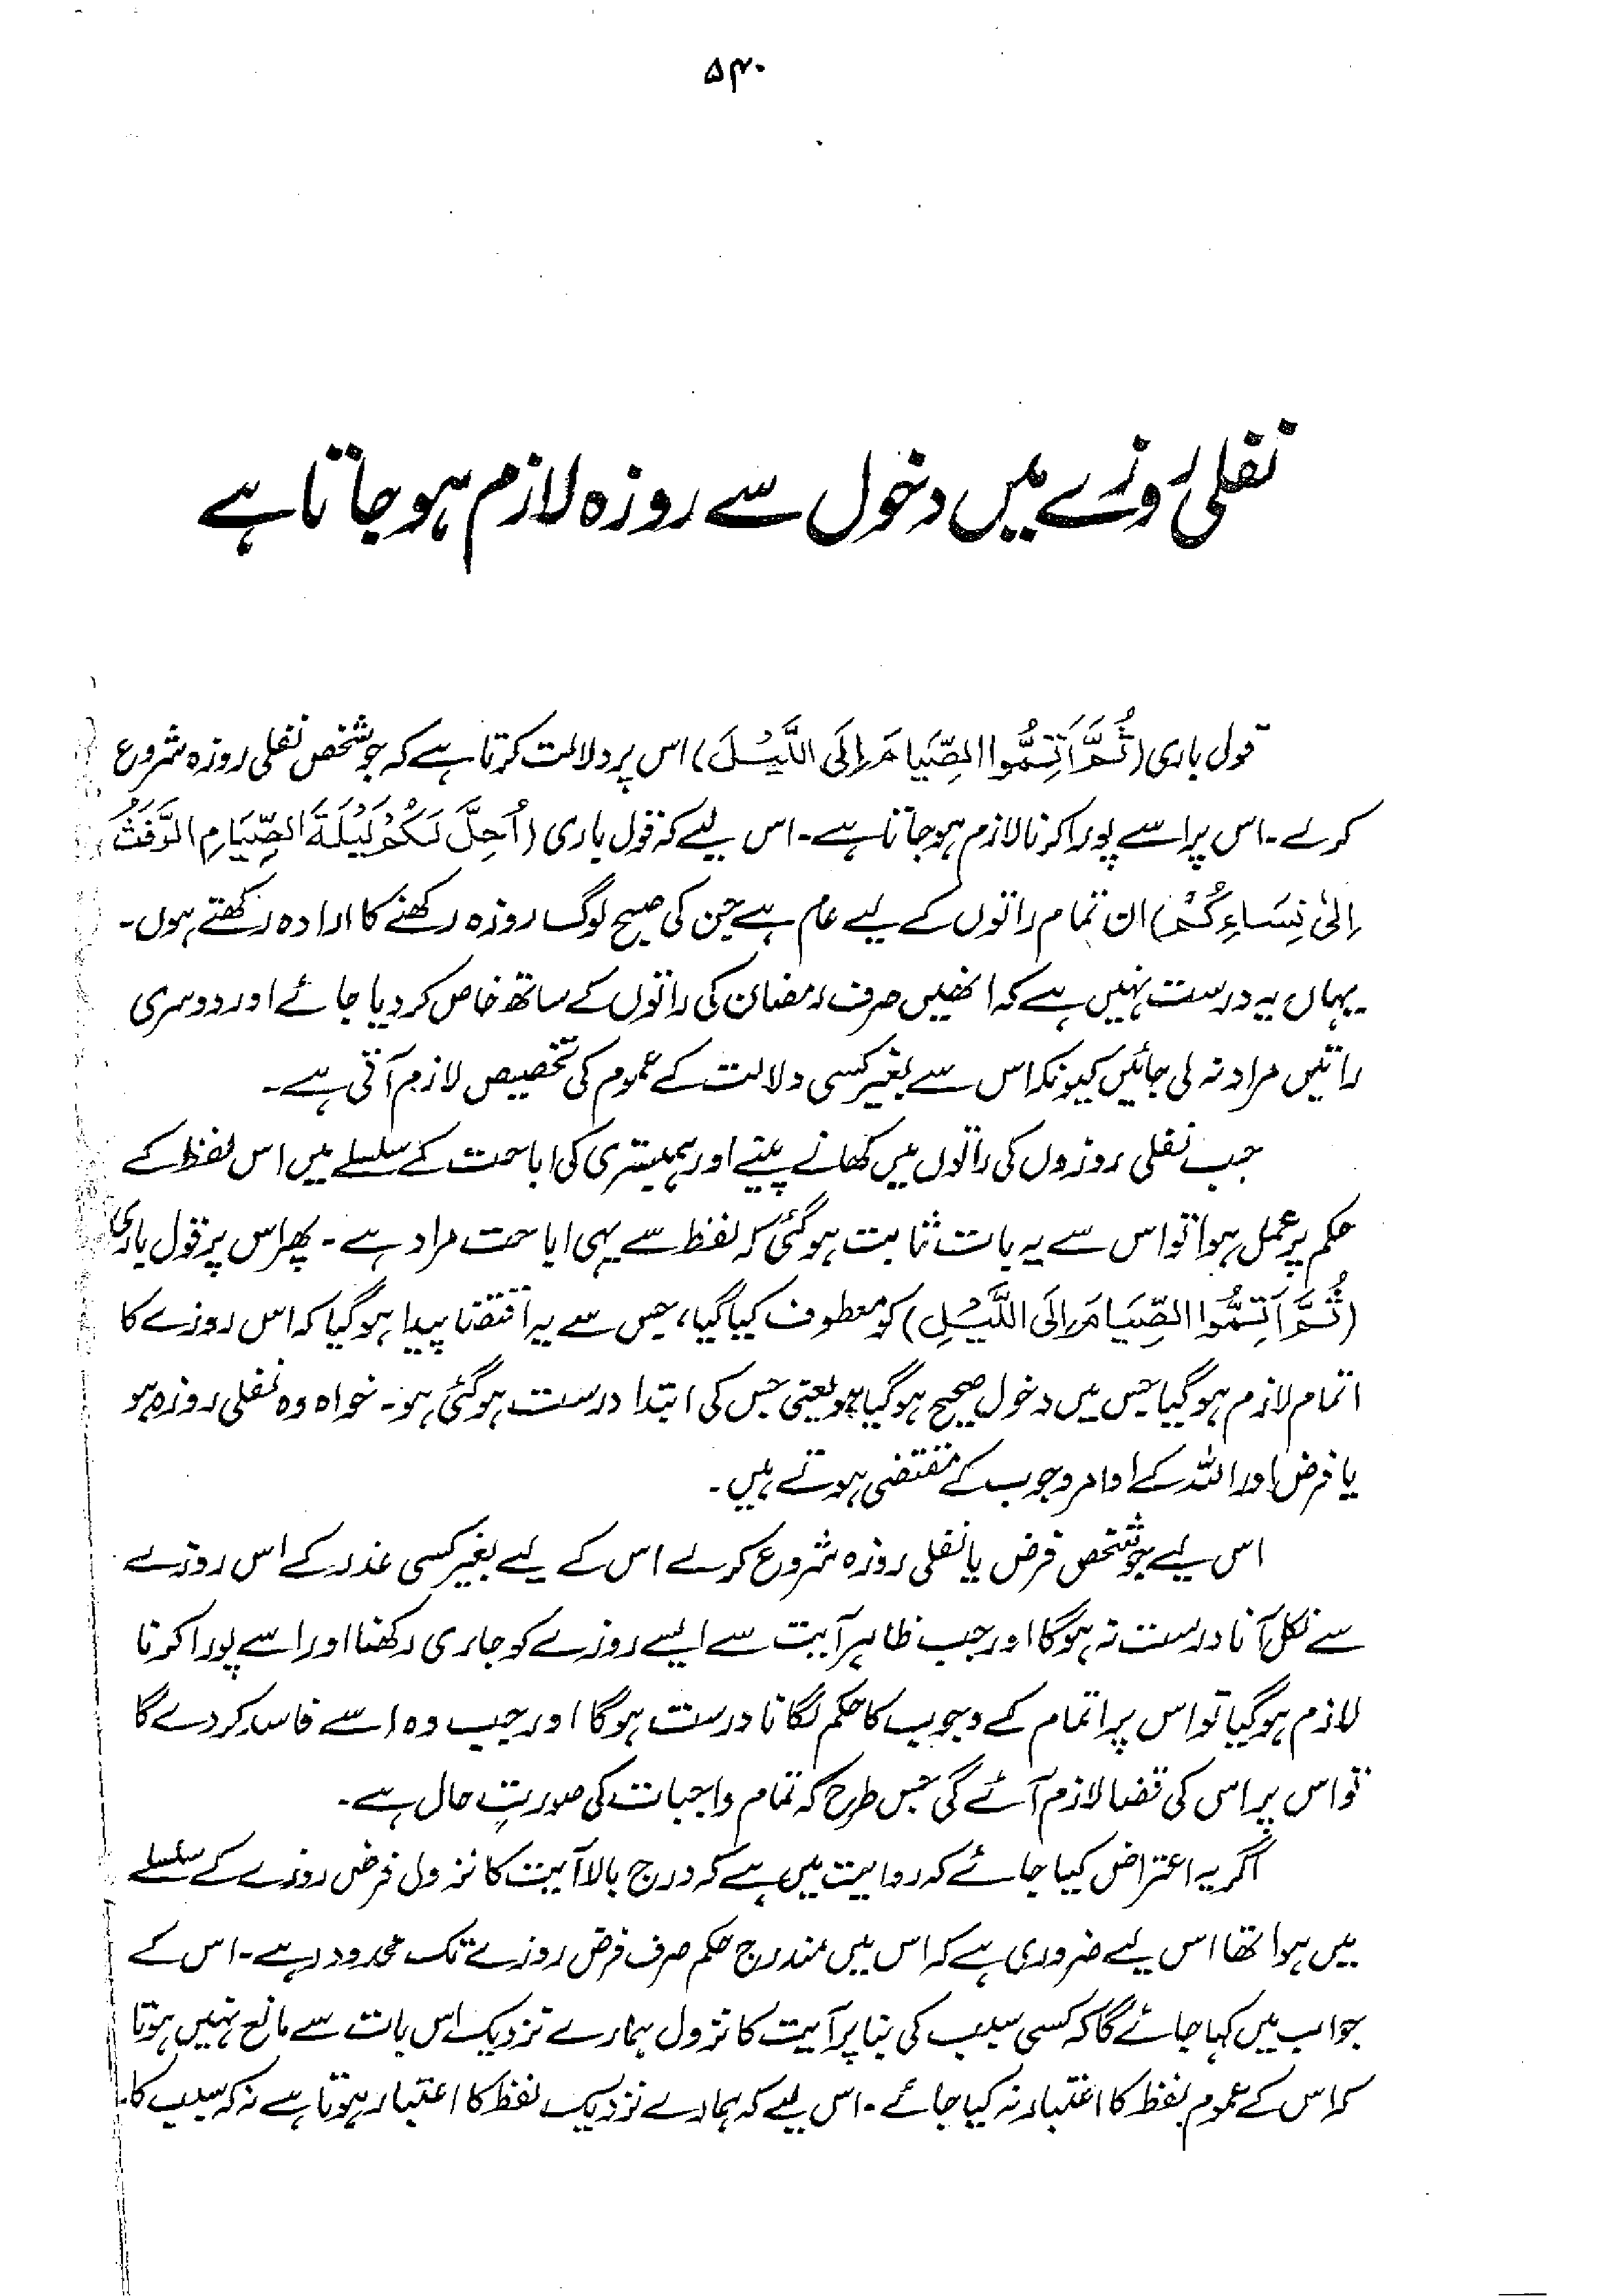 ۵۴۰
نفلی روزے میں دخول سے روزہ لازم ہو جاتا ہے
قول باری (ثُمَّ اَتِمُّوا الصِّيَامَ اِلَى اللَّيْلَ) اس پر دلالت کرتا ہے کہ جو شخص نفلی روزہ شروع
کرلے۔ اس پر اسے پورا کرنا لازم ہو جاتا ہے۔ اس لیے کہ قول باری (اُحِلَّ لَكُمْ لَيْلَةَ الصِّيَامِ الرَّفَثُ
اِلٰى نِسَاءِكُمْ) ان تمام راتوں کے لیے عام ہے جن کی صبح لوگ روزہ رکھنے کا ارادہ رکھتے ہوں۔
یہاں یہ درست نہیں ہے کہ انھیں صرف رمضان کی راتوں کے ساتھ خاص کر دیا جائے اور دوسری
راتیں مراد نہ لی جائیں کیونکہ اس سے بغیر کسی دلالت کے عموم کی تخصیص لازم آتی ہے۔
جب نفلی روزوں کی راتوں میں کھانے پینے اور ہمبستری کی اباحت کے سلسلے میں اس لفظ کے
حکم پر عمل ہوا تو اس سے یہ بات ثابت ہوگئی کہ لفظ سے یہی اباحت مراد ہے۔ پھر اس پر قول باری
(ثُمَّ اَتِمُّوا الصِّيَامَ اِلَى اللَّيْلِ) کو معطوف کیا گیا، جس سے یہ اقتضا پیدا ہو گیا کہ اس روزے کا
اتمام لازم ہوگیا جس میں دخول صحیح ہوگیا ہو یعنی جس کی ابتدا درست ہو گئی ہو۔ خواہ وہ نفلی روزہ ہو
یا فرض اور اللہ کے اوامر وجوب کے مقتضی ہوتے ہیں۔
اس لیے جو شخص فرض یا نفلی روزہ شروع کرلے اس کے لیے بغیر کسی عذر کے اس روزے
سے نکل آنا درست نہ ہوگا اور جب ظاہر آیت سے ایسے روزے کو جاری رکھنا اور اسے پورا کرنا
لازم ہوگیا تو اس پر اتمام کے وجوب کا حکم لگانا درست ہوگا اور جب وہ اسے فاسد کر دے گا
تو اس پر اس کی قضا لازم آئے گی جس طرح کہ تمام واجبات کی صورتِ حال ہے۔
اگر یہ اعتراض کیا جائے کہ روایت میں ہے کہ درج بالا آیت کا نزول فرض روزے کے سلسلے
میں ہوا تھا اس لیے ضروری ہے کہ اس میں مندرج حکم صرف فرض روزے تک محدود رہے۔ اس کے
جواب میں کہا جائے گا کہ کسی سبب کی بنا پر آیت کا نزول ہمارے نزدیک اس بات سے مانع نہیں ہوتا
کہ اس کے عموم لفظ کا اعتبار نہ کیا جائے۔ اس لیے کہ ہمارے نزدیک لفظ کا اعتبار ہوتا ہے نہ کہ سبب کا۔